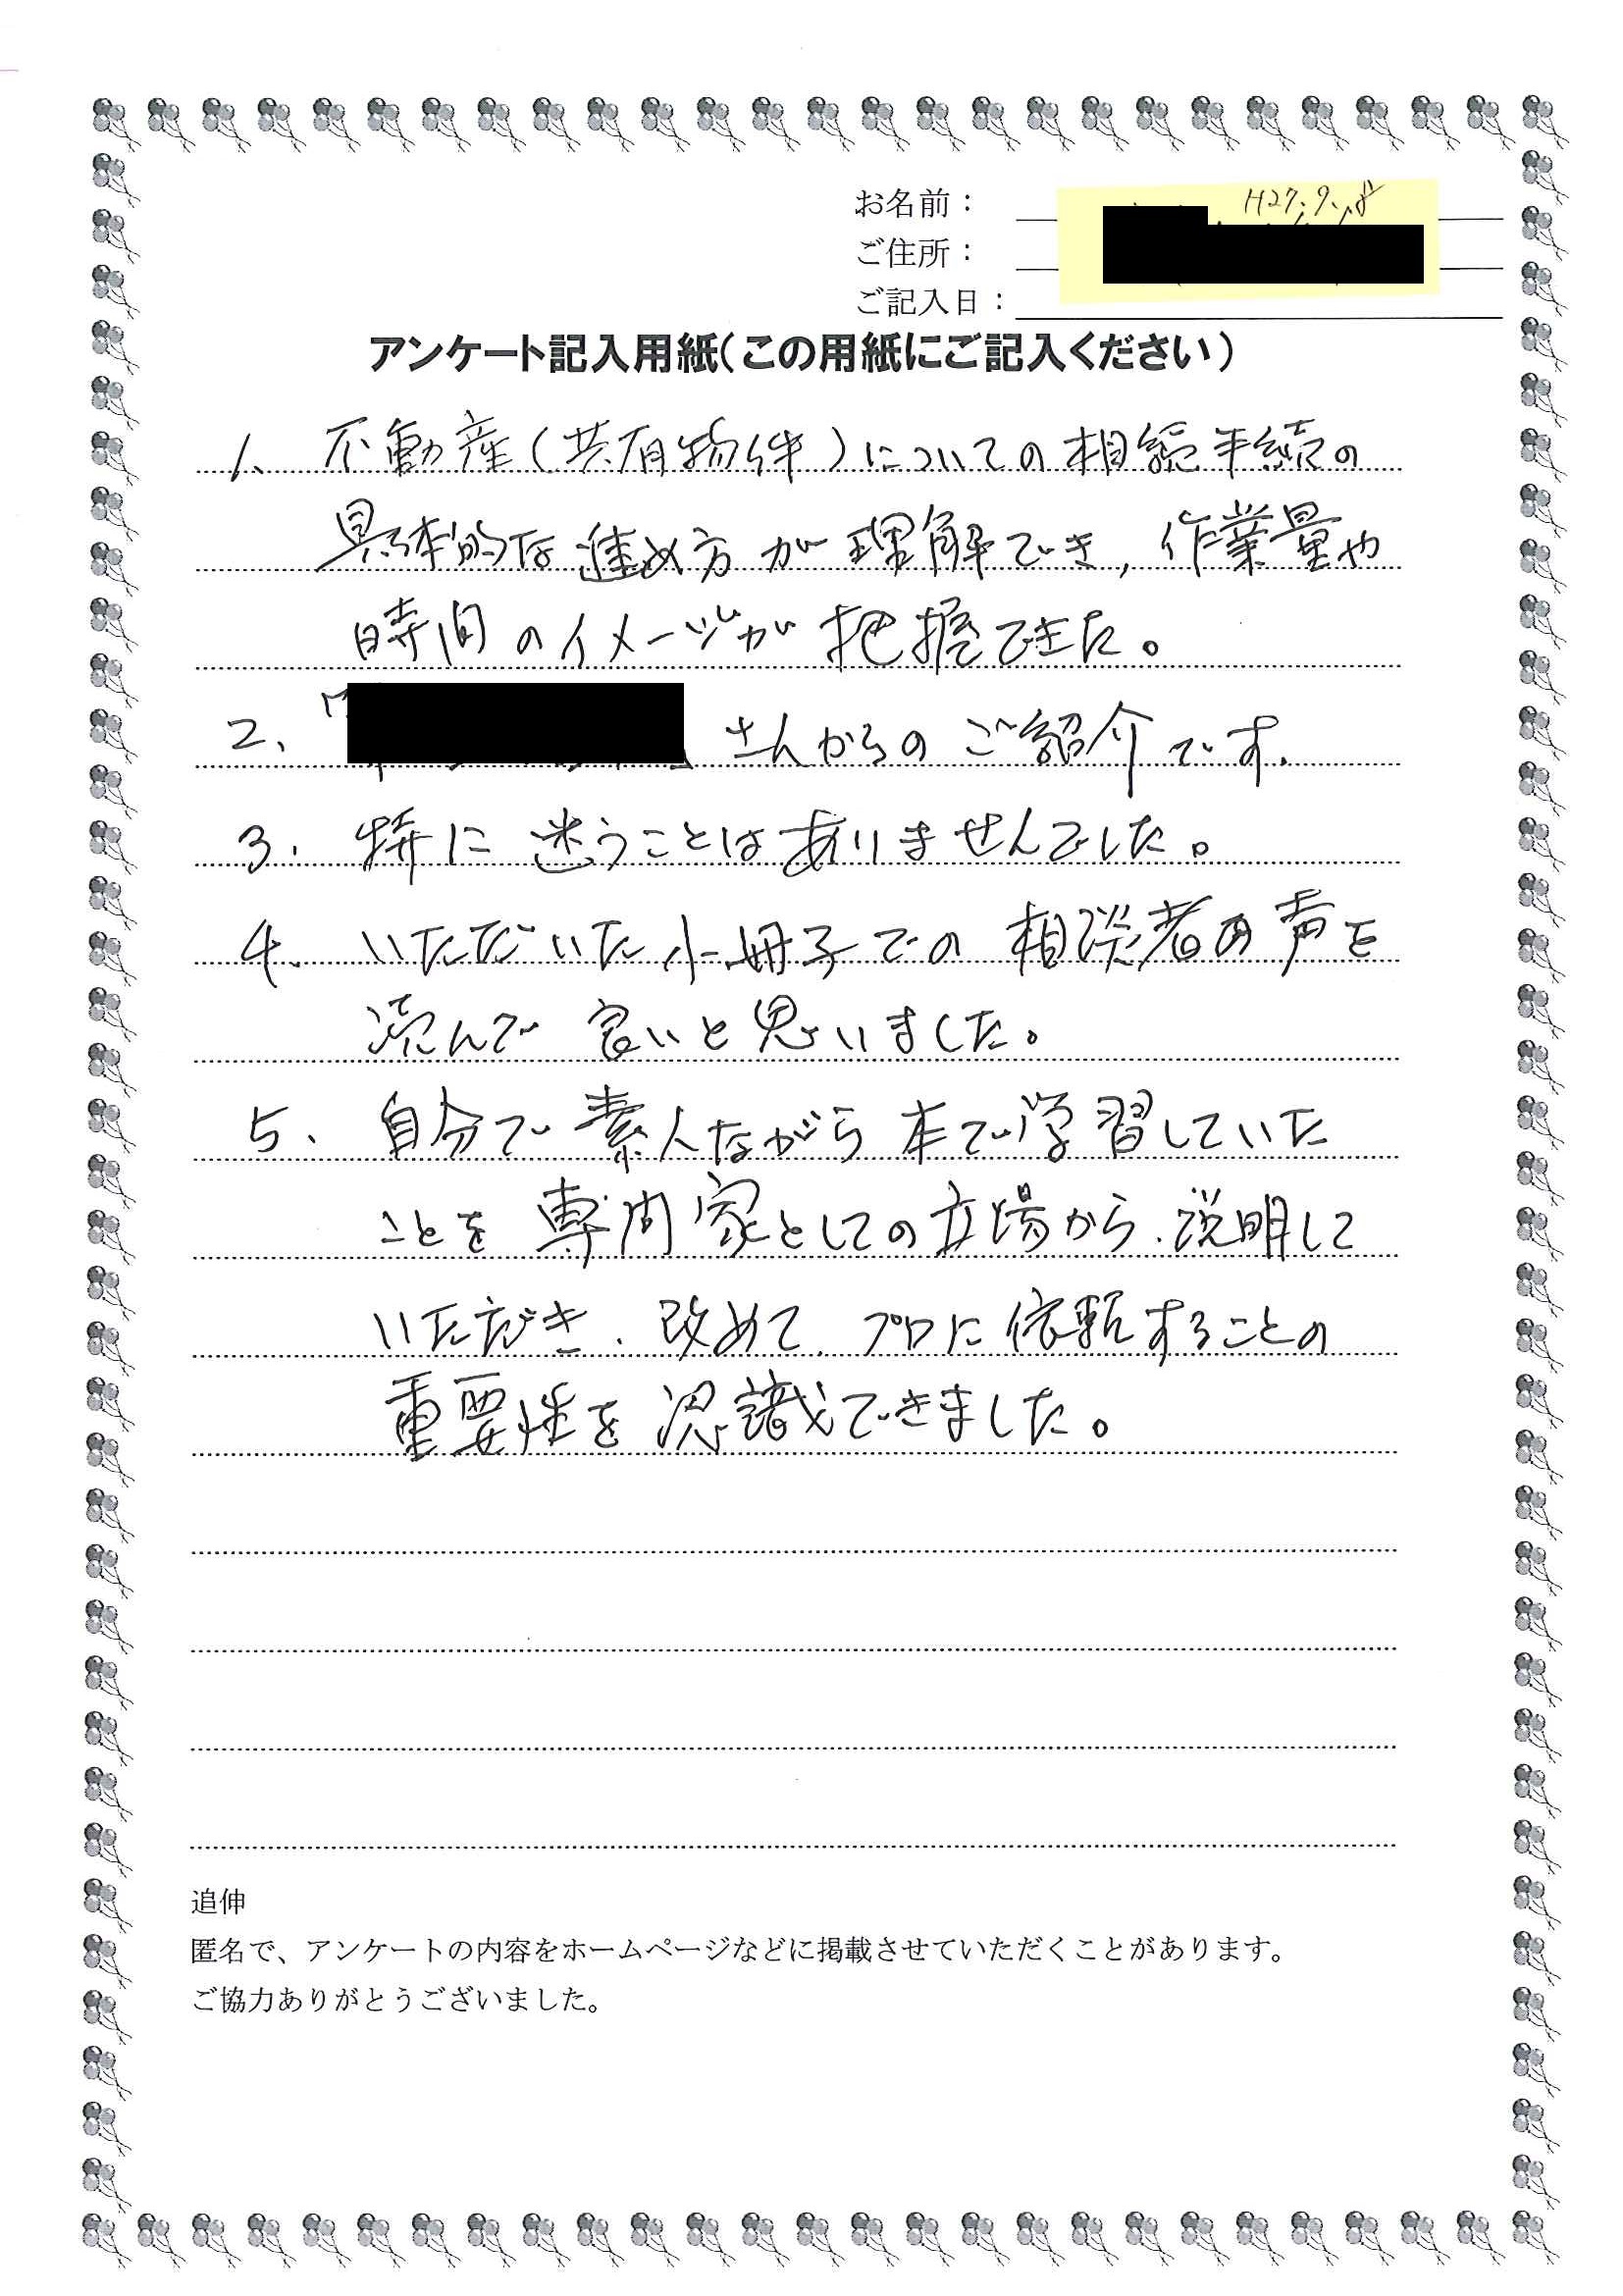 お名前：
H27.9.18
ご住所：
ご記入日：
アンケート記入用紙（この用紙にご記入ください）
1、不動産（共有物件）についての相続手続の
具体的な進め方が理解でき，作業量や
時間のイメージが把握できた。
2、さんからのご紹介です．
3．特に迷うことはありませんでした。
4．いただいた小冊子での相談者の声を
読んで良いと思いました。
5．自分で素人ながら本で学習していた
ことを専門家としての立場から、説明して
いただき、改めて、プロに依頼することの
重要性を認識できました。
追伸
匿名で、アンケートの内容をホームページなどに掲載させていただくことがあります。
ご協力ありがとうございました。